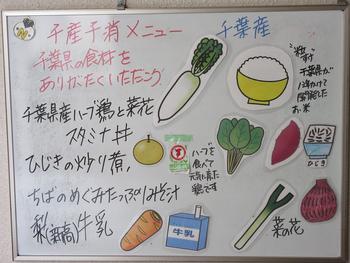 千産千消メニュー
千葉県の食材を
ありがたくいただこう
千葉産
"粒すけ"
千葉県が
開発した
お米
千葉県産ハーブ鶏と菜花
スタミナ丼
ひじきの炒り煮
ハーブを
食べて
元気に育た
鶏です
ひじき
ちばのめぐみたっぷりみそ汁
梨(新高)牛乳
牛乳
菜の花